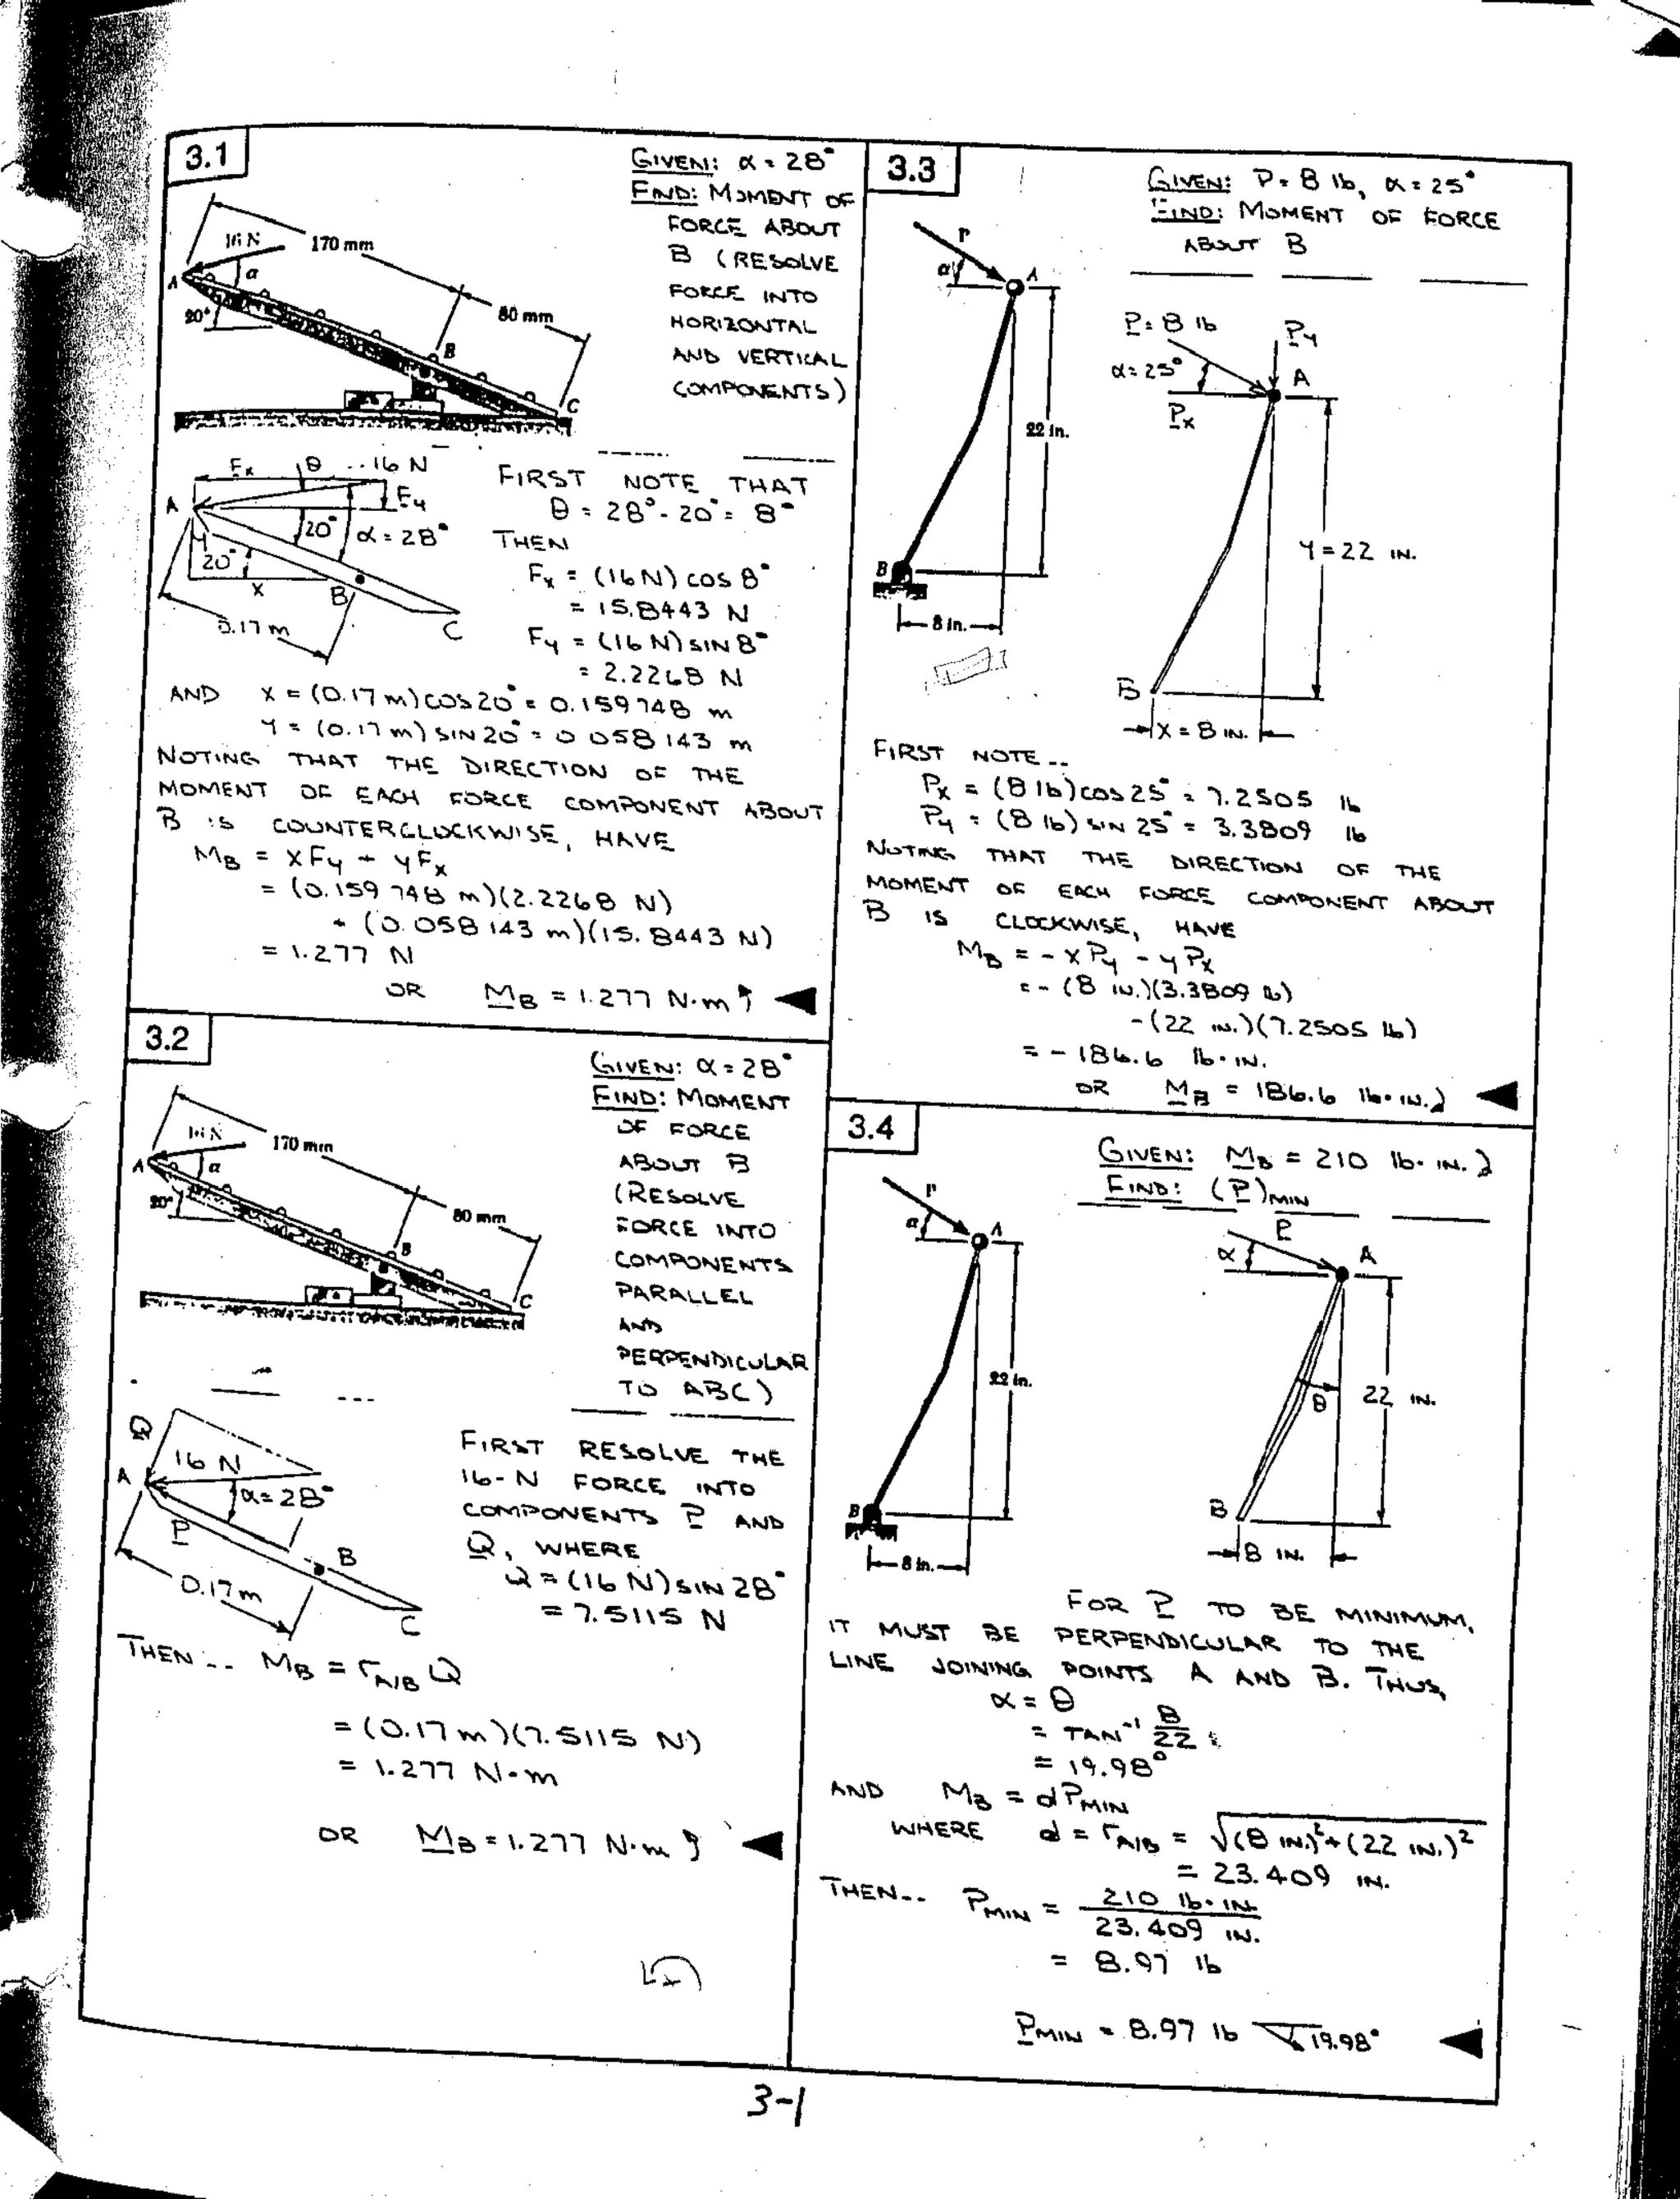 3.1
GIVEN: α = 28°
FIND: MOMENT OF
FORCE ABOUT
B (RESOLVE
FORCE INTO
HORIZONTAL
AND VERTICAL
COMPONENTS)
16 N
170 mm
A
α
20°
80 mm
B
C
Fx
θ
16 N
Fy
A
20°
α = 28°
20°
x
B
C
0.17 m
FIRST NOTE THAT
θ = 28° - 20° = 8°
THEN
Fx = (16 N) cos 8°
= 15.8443 N
Fy = (16 N) SIN 8°
= 2.2268 N
AND x = (0.17 m) cos 20° = 0.159 748 m
y = (0.17 m) SIN 20° = 0.058 143 m
NOTING THAT THE DIRECTION OF THE
MOMENT OF EACH FORCE COMPONENT ABOUT
B IS COUNTERCLOCKWISE, HAVE
MB = xFy + yFx
= (0.159 748 m)(2.2268 N)
+ (0.058 143 m)(15.8443 N)
= 1.277 N
OR MB = 1.277 N·m ↰
3.2
GIVEN: α = 28°
FIND: MOMENT
OF FORCE
ABOUT B
(RESOLVE
FORCE INTO
COMPONENTS
PARALLEL
AND
PERPENDICULAR
TO ABC)
16 N
170 mm
A
α
20°
80 mm
B
C
Q
16 N
A
α = 28°
P
B
0.17 m
C
FIRST RESOLVE THE
16-N FORCE INTO
COMPONENTS P AND
Q, WHERE
Q = (16 N) SIN 28°
= 7.5115 N
THEN -- MB = rA/B Q
= (0.17 m)(7.5115 N)
= 1.277 N·m
OR MB = 1.277 N·m ↰
3.3
GIVEN: P = 8 lb, α = 25°
FIND: MOMENT OF FORCE
ABOUT B
P
α
A
22 in.
B
8 in.
P = 8 lb
Py
α = 25°
A
Px
y = 22 IN.
B
x = 8 IN.
FIRST NOTE --
Px = (8 lb) cos 25° = 7.2505 lb
Py = (8 lb) SIN 25° = 3.3809 lb
NOTING THAT THE DIRECTION OF THE
MOMENT OF EACH FORCE COMPONENT ABOUT
B IS CLOCKWISE, HAVE
MB = - xPy - yPx
= - (8 IN.)(3.3809 lb)
- (22 IN.)(7.2505 lb)
= - 186.6 lb·IN.
OR MB = 186.6 lb·IN. ↲
3.4
GIVEN: MB = 210 lb·IN. ↲
FIND: (P)MIN
P
α
A
22 in.
B
8 in.
P
α
A
θ
22 IN.
B
8 IN.
FOR P TO BE MINIMUM,
IT MUST BE PERPENDICULAR TO THE
LINE JOINING POINTS A AND B. THUS,
α = θ
= TAN⁻¹ 8/22
= 19.98°
AND MB = dPMIN
WHERE d = rA/B = √(8 IN.)² + (22 IN.)²
= 23.409 IN.
THEN -- PMIN = 210 lb·IN. / 23.409 IN.
= 8.97 lb
PMIN = 8.97 lb 19.98°
3-1